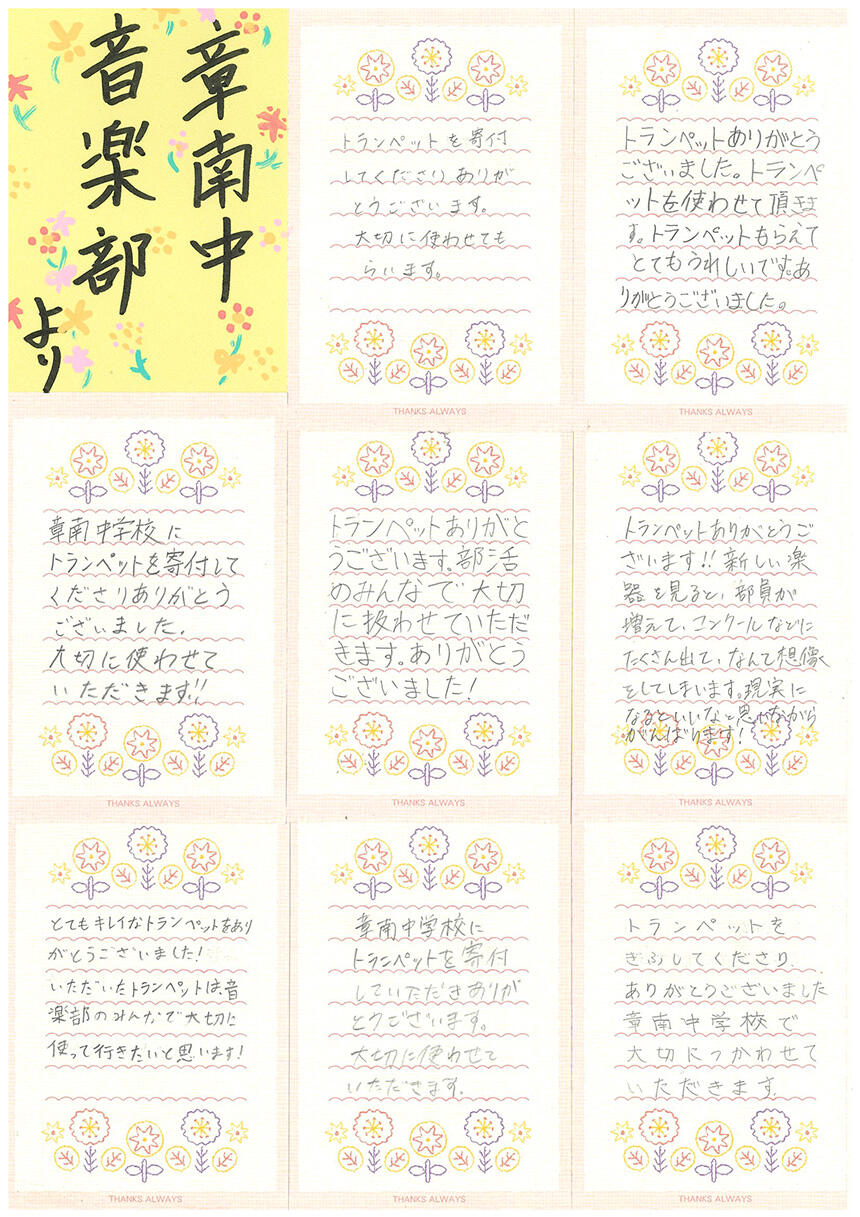 章南中
音楽部
より
トランペットを寄付
してくださりありが
とうございます。
大切に使わせても
らいます。
THANKS ALWAYS
トランペットありがとう
ございました。トランペ
ットを使わせて頂きま
す。トランペットもらえて
とてもうれしいです。あ
りがとうございました。
THANKS ALWAYS
章南中学校に
トランペットを寄付して
くださりありがとう
ございました.
大切に使わせて
いただきます!!
THANKS ALWAYS
トランペットありがと
うございます。部活
のみんなで大切
に扱わせていただ
きます。ありがとう
ございました!
THANKS ALWAYS
トランペットありがとうご
ざいます!!新しい楽
器を見ると、部員が
増えて、コンクールなどに
たくさん出て、なんて想像
をしてしまいます。現実に
なるといいなと思いながら
がんばります!
THANKS ALWAYS
とてもキレイなトランペットをあり
がとうございました!
いただいたトランペットは、音
楽部のみんなで大切に
使って行きたいと思います!
THANKS ALWAYS
章南中学校に
トランペットを寄付
していただきありが
とうございます。
大切に使わせて
いただきます.
THANKS ALWAYS
トランペットを
きふしてくださり、
ありがとうございました
章南中学校で
大切につかわせて
いただきます.
THANKS ALWAYS